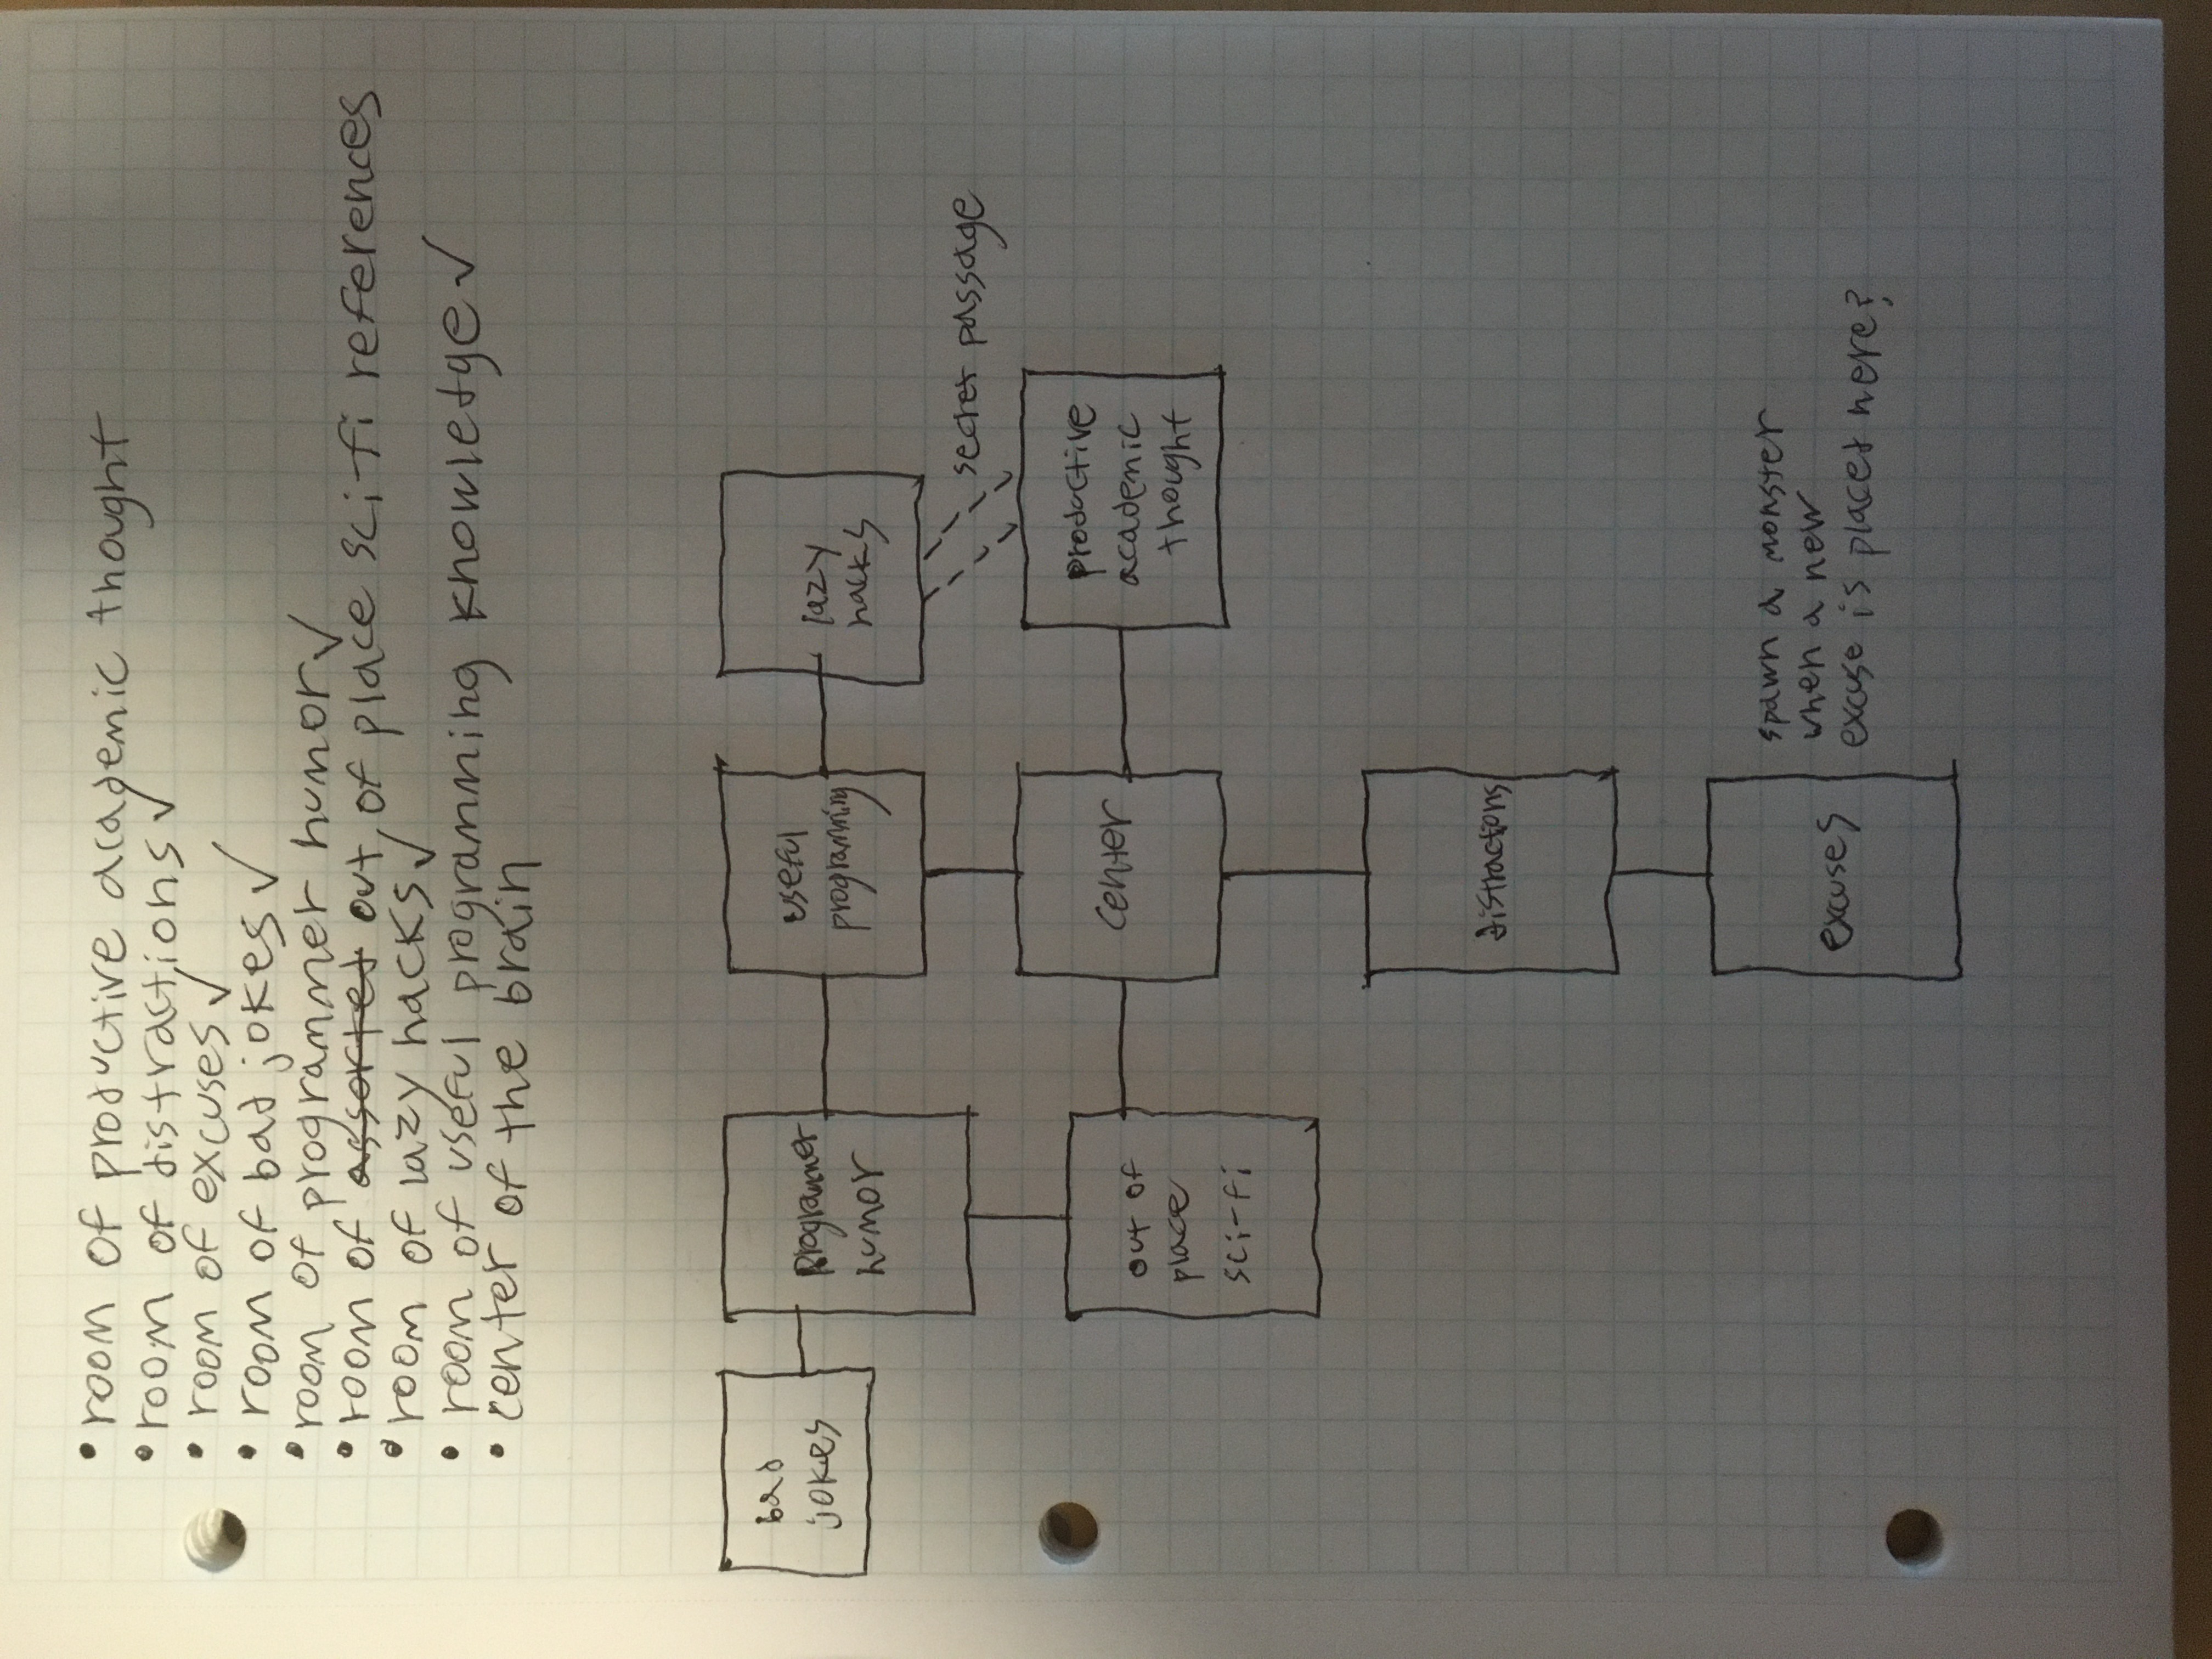 • room of productive academic thought
• room of distractions ✓
• room of excuses ✓
• room of bad jokes ✓
• room of programmer humor ✓
• room of assorted out of place sci-fi references
• room of lazy hacks ✓
• room of useful programming knowledge ✓
• center of the brain
bad
jokes
programmer
humor
useful
programming
lazy
hacks
secret passage
out of
place
sci-fi
center
productive
academic
thought
distractions
excuses
spawn a monster
when a new
excuse is placed here?